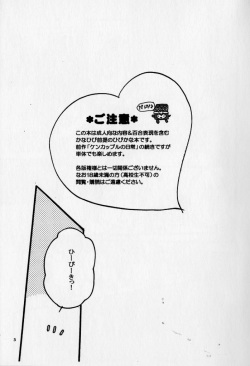 *ご注意*
この本は成人向な内容&百合表現を含む
かなひび前提のひびかな本です。
前作「ケンカップルの日常」の続きですが
単体でも楽しめます。
各版権様とは一切関係ございません。
なお18歳未満の方(高校生不可)の
閲覧・購読はご遠慮ください。
ひーびーきっ!